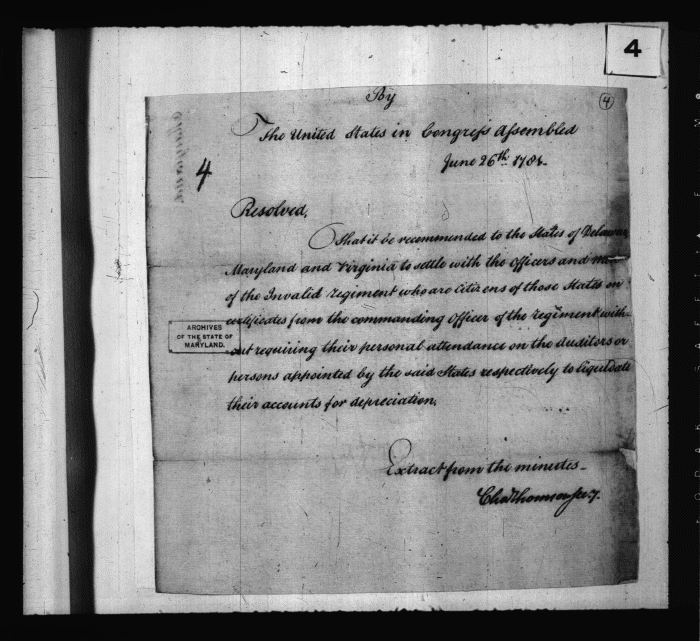 4
By
4
The United States in Congress Assembled
June 26th 1781.
4
Resolved,
That it be recommended to the States of Delaware
Maryland and Virginia to settle with the officers and
of the Invalid regiment who are Citizens of those States on
certificates from the commanding Officer of the regiment with-
out requiring their personal attendance on the Auditors or
persons appointed by the said States respectively to liquidate
their accounts for depreciation.
ARCHIVES
OF THE STATE OF
MARYLAND.
Extract from the minutes_
Cha Thomson Secy.